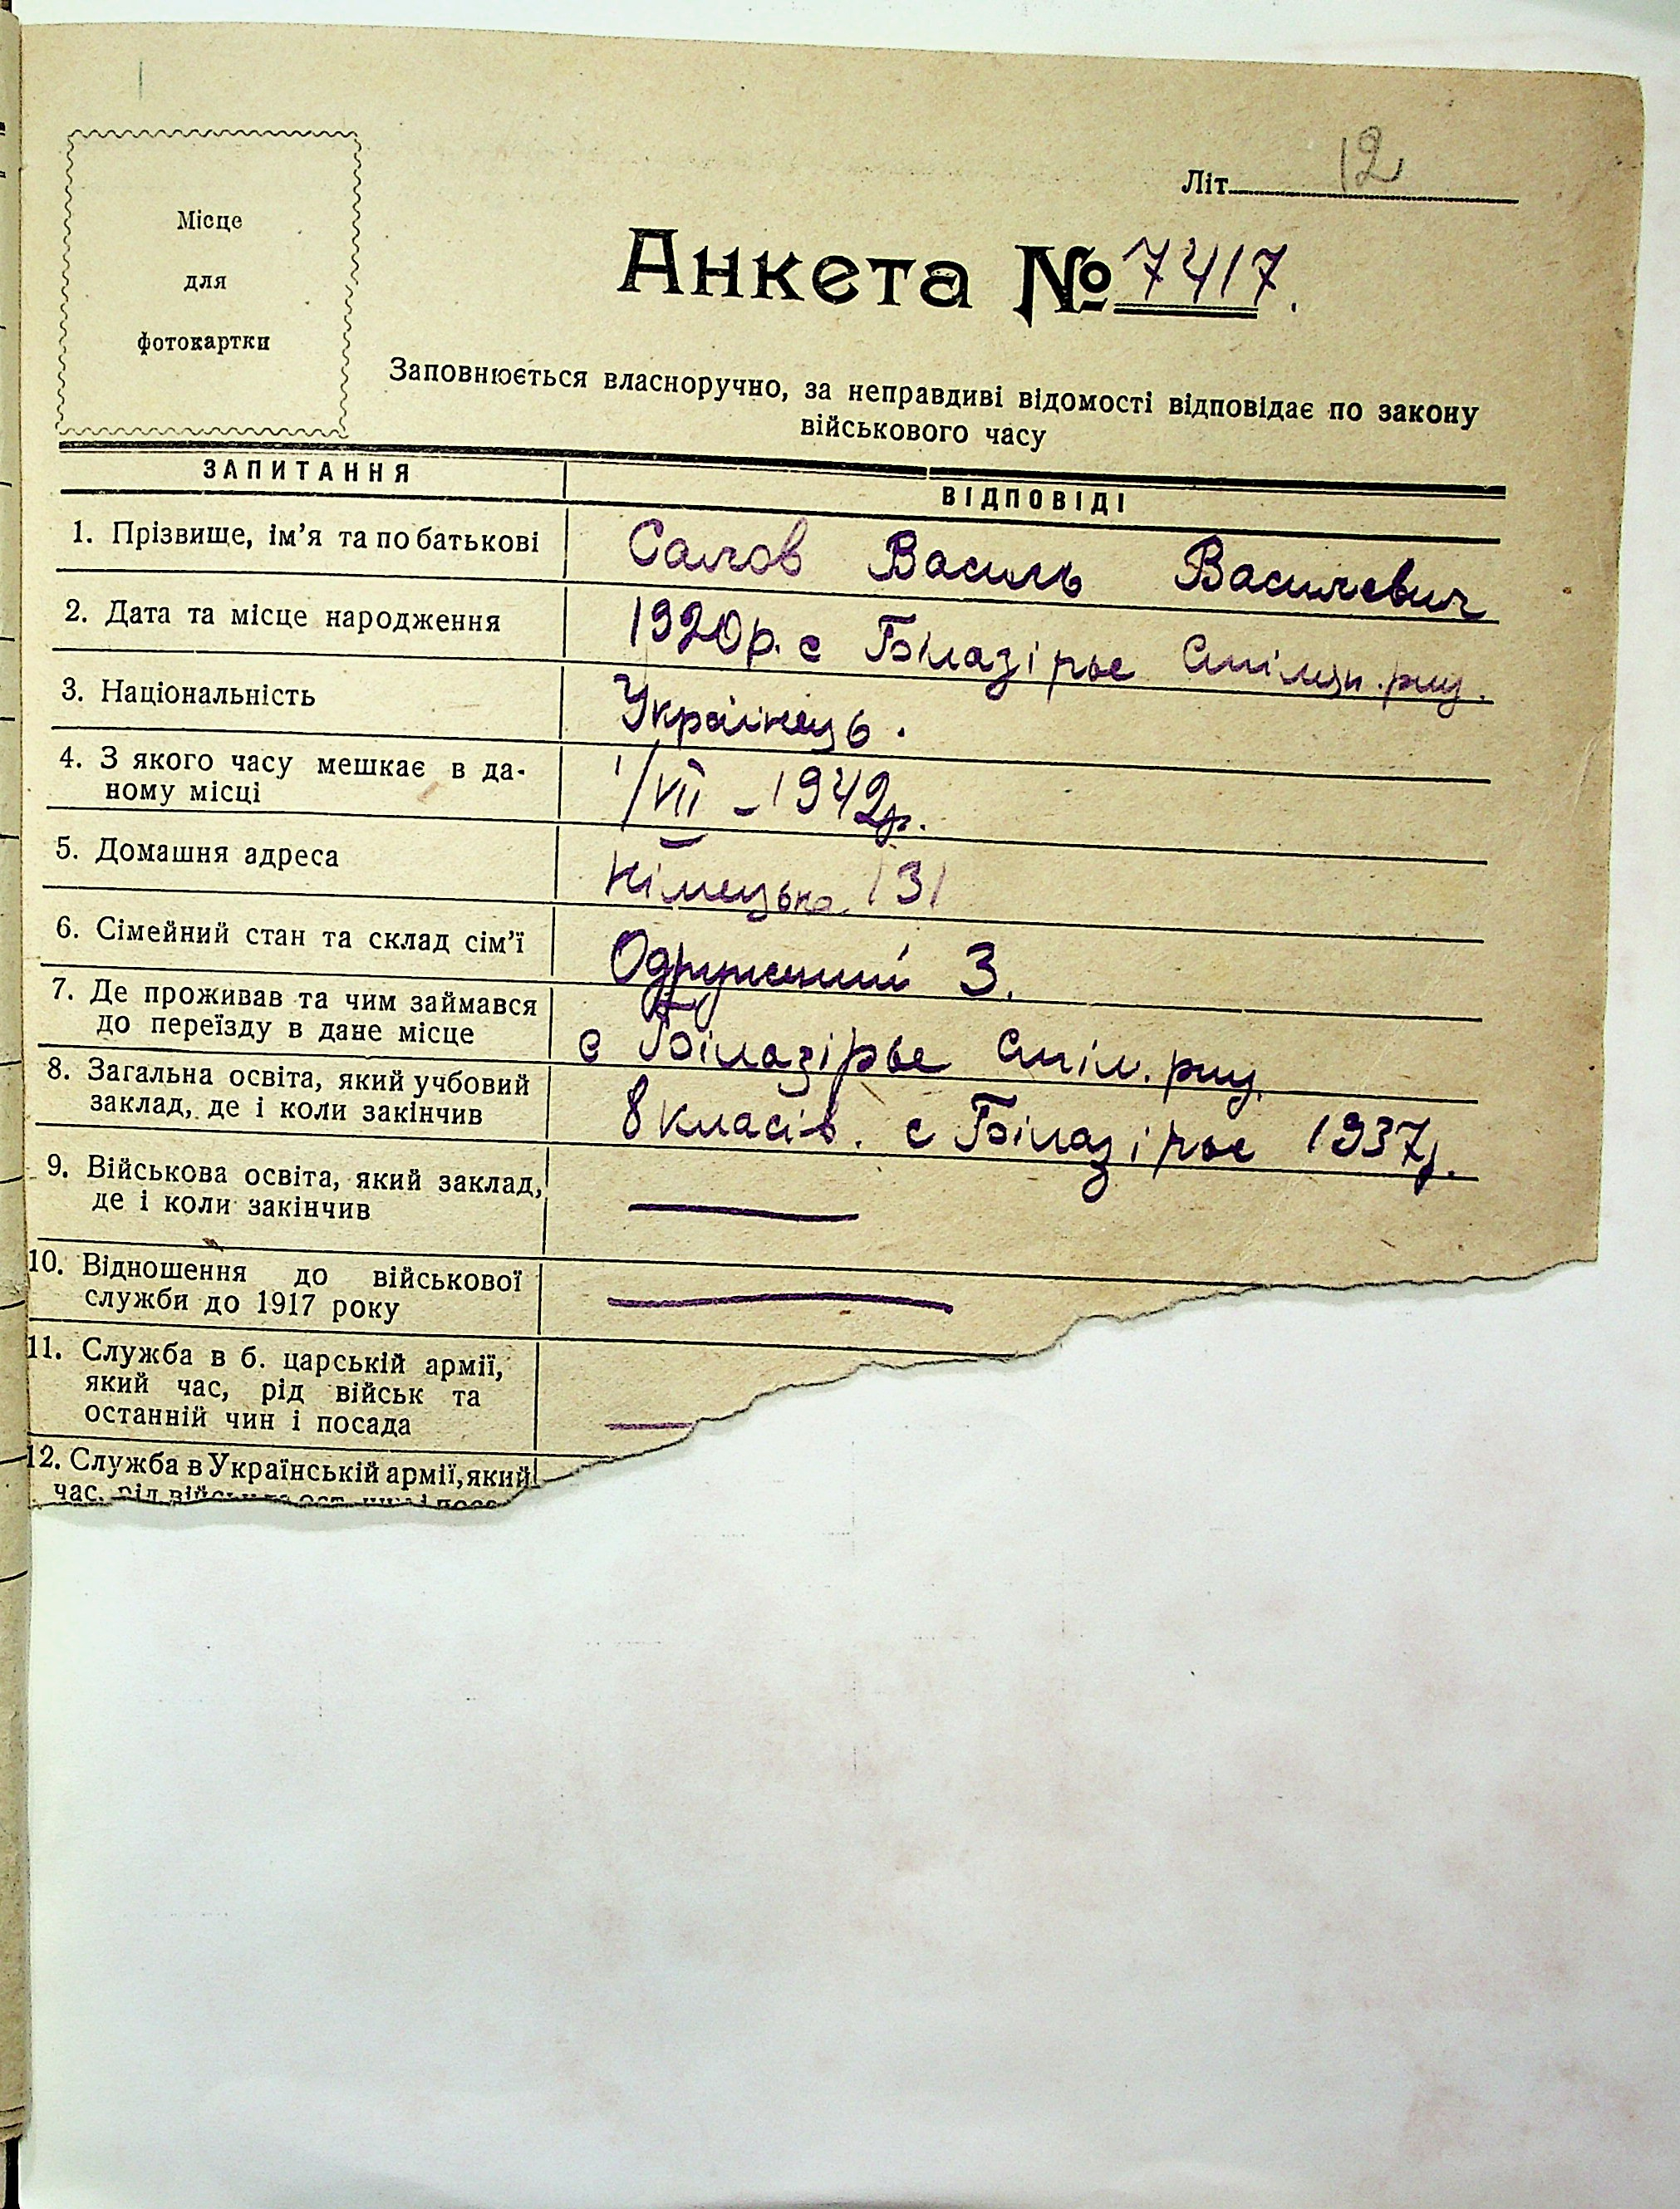 Місце
для
фотокартки
Літ. 12
Анкета № 7417.
Заповнюється власноручно, за неправдиві відомості відповідає по закону
військового часу
ЗАПИТАННЯ ВІДПОВІДІ
1. Прізвище, ім'я та по батькові Салов Василь Василевич
2. Дата та місце народження 1920р. с Білазірье Смілян. рну.
3. Національність Українець.
4. З якого часу мешкає в да-
ному місці 1/VII – 1942р.
5. Домашня адреса Німецька 131
6. Сімейний стан та склад сім'ї Одружений 3.
7. Де проживав та чим займався
до переїзду в дане місце с Білазірье Сміл. рну.
8. Загальна освіта, який учбовий
заклад, де і коли закінчив 8 класів. с Білазірье 1937р.
9. Військова освіта, який заклад,
де і коли закінчив —
10. Відношення до військової
служби до 1917 року —
11. Служба в б. царській армії,
який час, рід військ та
останній чин і посада —
12. Служба в Українській армії, який
час, рід військ та ост.